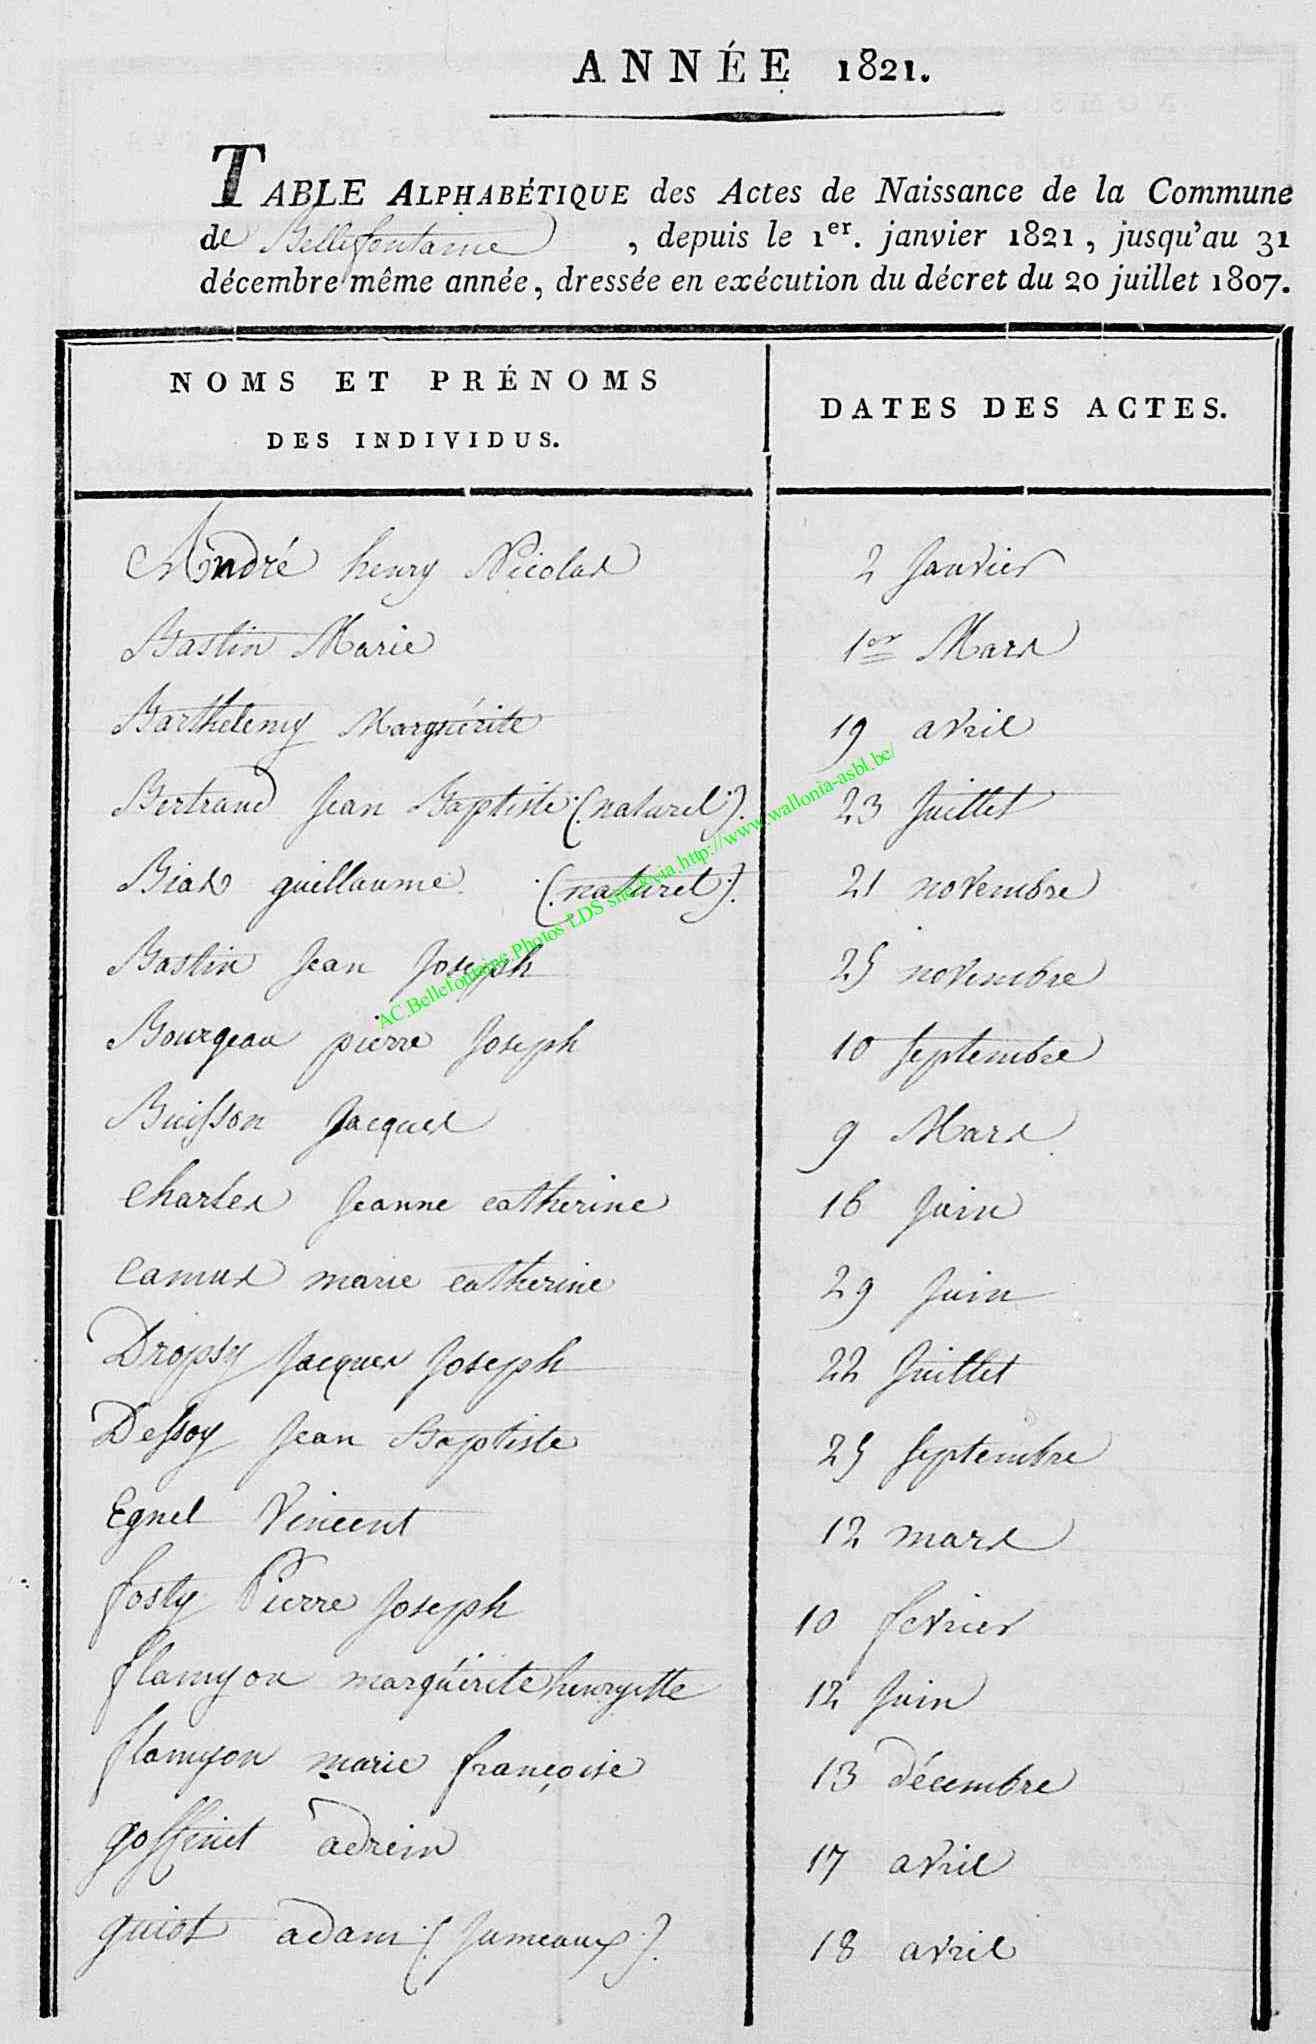 ANNÉE 1821.
TABLE ALPHABÉTIQUE des Actes de Naissance de la Commune
de Bellefontaine, depuis le 1er. janvier 1821, jusqu'au 31
décembre même année, dressée en exécution du décret du 20 juillet 1807.
NOMS ET PRÉNOMS
DES INDIVIDUS.
DATES DES ACTES.
André henry Nicolas 2 Janvier
Bastin Marie 1er Mars
Barthelemy Marguérite 19 avril
Bertrand Jean Baptiste (naturel). 23 Juillet
Biax guillaume (naturel). 21 novembre
Bastin Jean Joseph 25 novembre
Bourgeau pierre Joseph 10 Septembre
Buisson Jacques 9 Mars
Charles Jeanne catherine 16 Juin
camus marie catherine 29 Juin
Dropsy Jacques Joseph 22 Juillet
Dessoy Jean Baptiste 25 Septembre
Egnel Vincent 12 mars
fosty Pierre Joseph 10 fevrier
flamyon marguérite henryette 12 Juin
flamyon marie françoise 13 décembre
goffinet adrein 17 avril
guiot adam (Jumeaux). 18 avril
AC.Bellefontaine Photos LDS via http://www.wallonia-asbl.be/